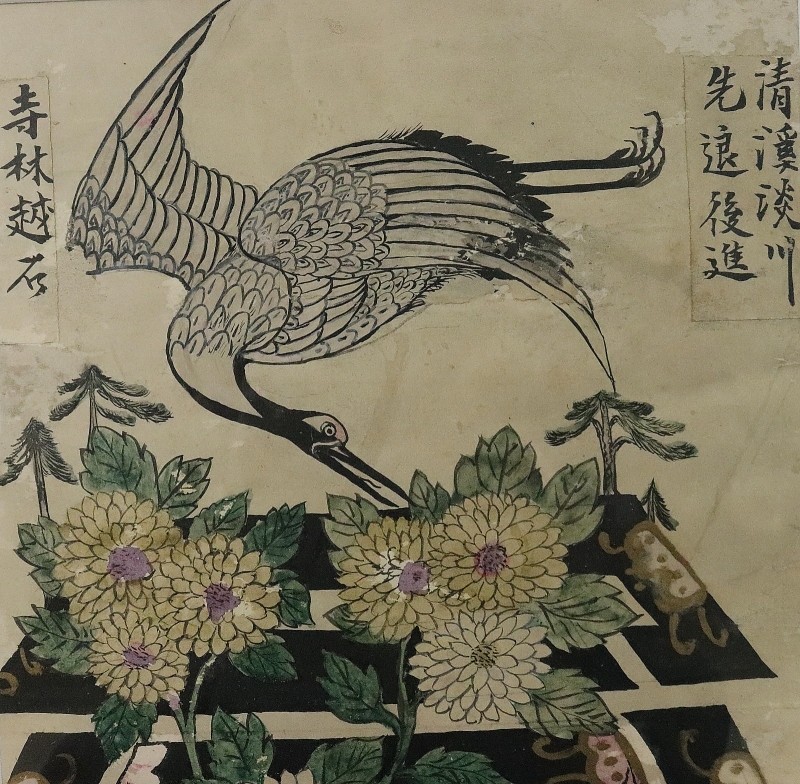 清溪淡川
先退後進
寺林越石